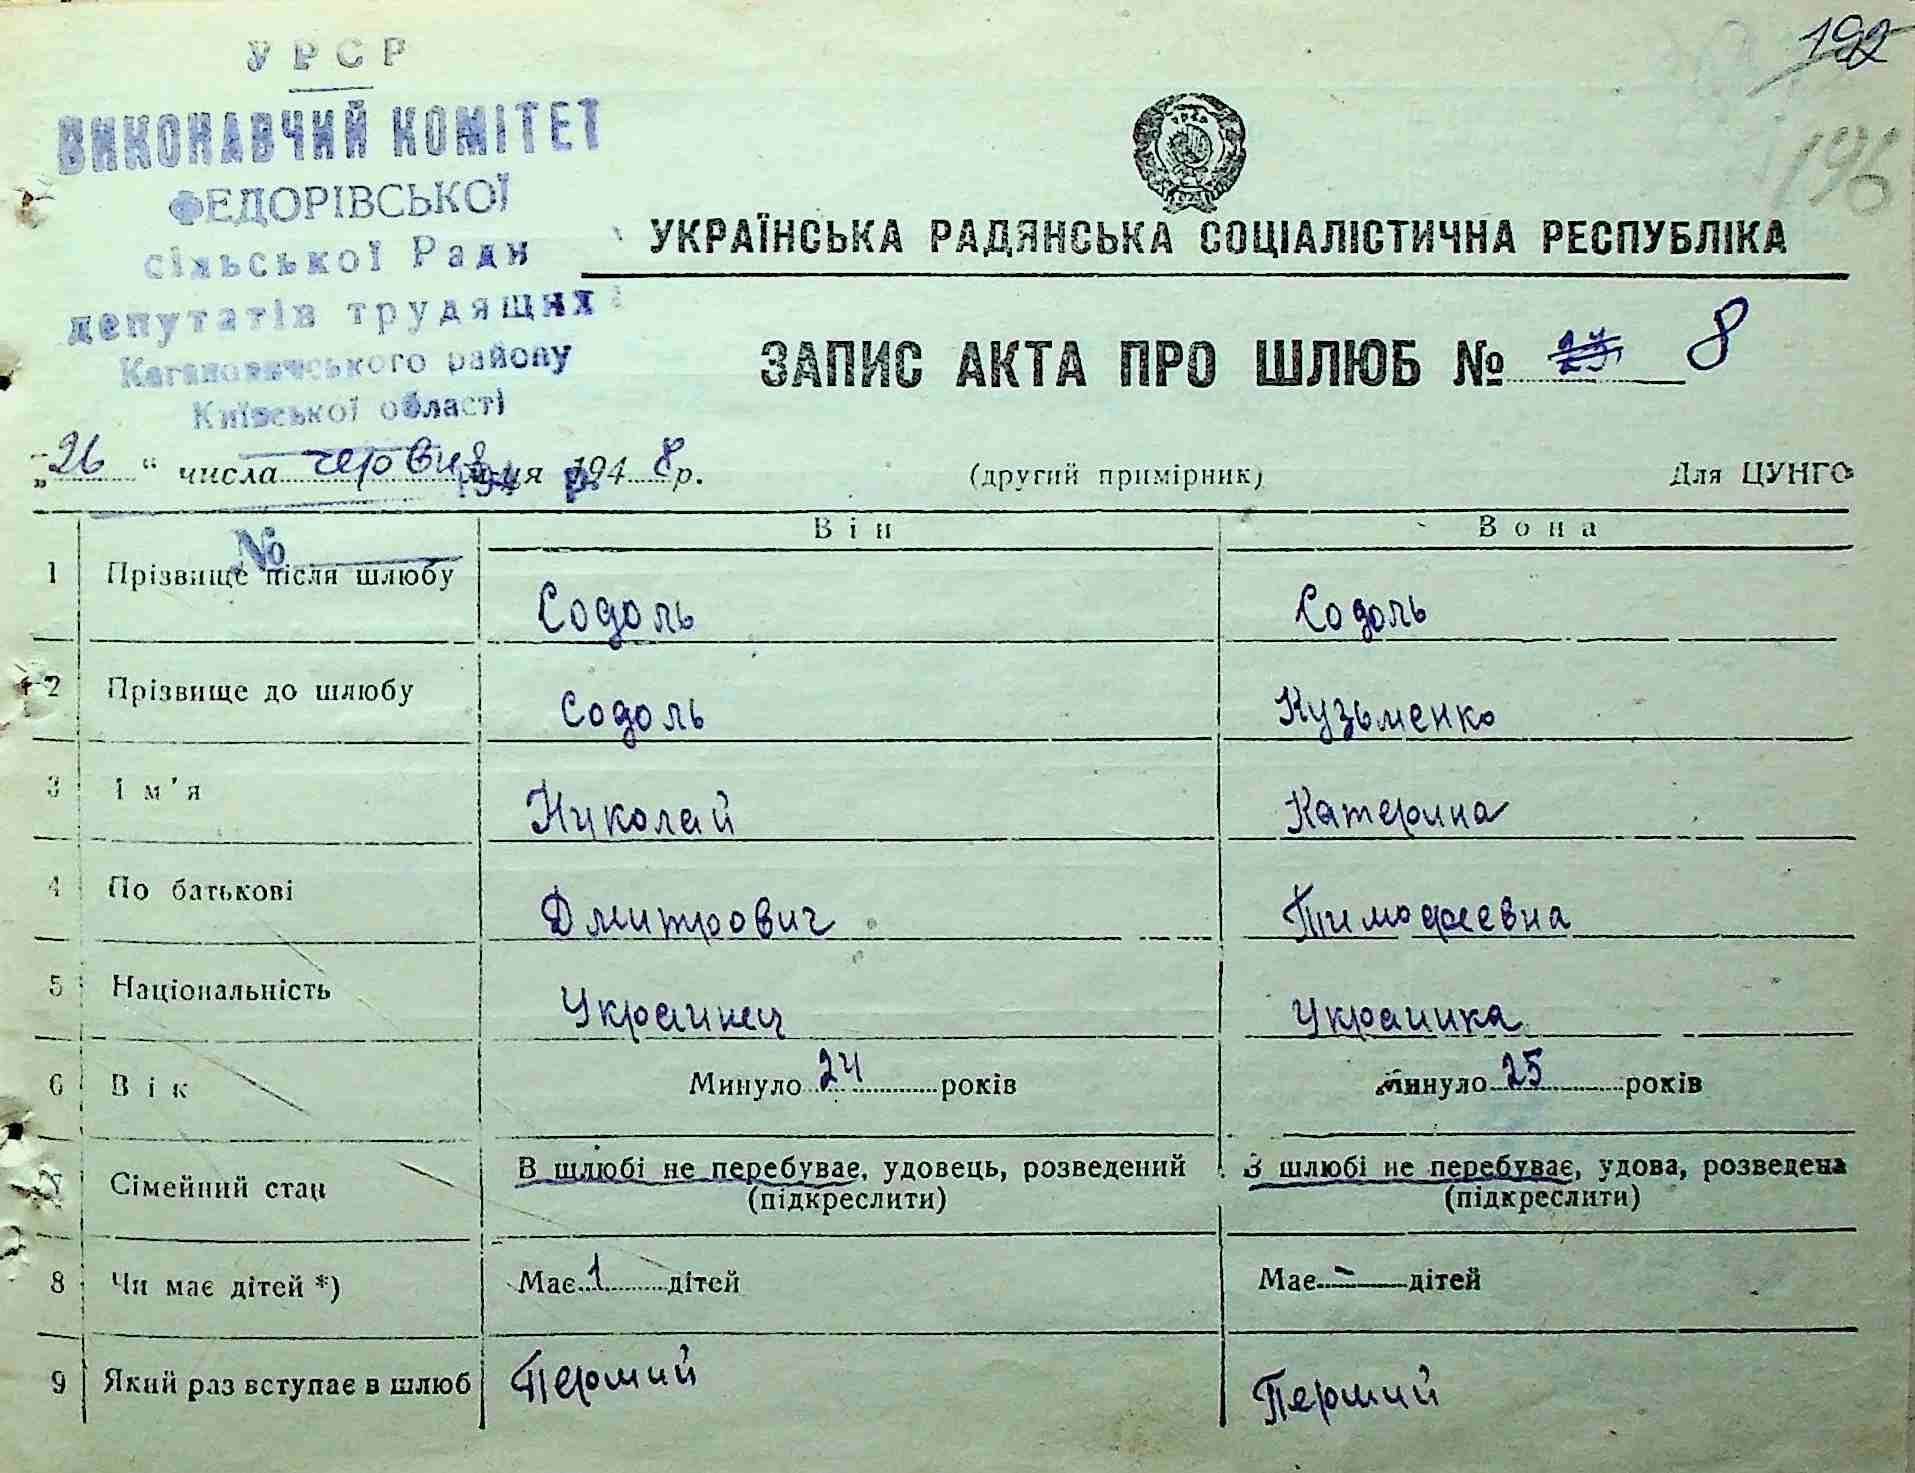 192
196
УРСР
ВИКОНАВЧИЙ КОМІТЕТ
ФЕДОРІВСЬКОЇ
сільської Ради
депутатів трудящих
Кагановичського району
Київської області
УКРАЇНСЬКА РАДЯНСЬКА СОЦІАЛІСТИЧНА РЕСПУБЛІКА
ЗАПИС АКТА ПРО ШЛЮБ № 8
„26“ числа червня 1948 р.
(другий примірник)
Для ЦУНГО
194 р.
№
Він Вона
1 Прізвище після шлюбу Содоль Содоль
2 Прізвище до шлюбу Содоль Кузьменко
3 Ім'я Николай Катерина
4 По батькові Дмитрович Тимофеевна
5 Національність Украинец Украинка
6 Вік Минуло 24 років Минуло 25 років
7 Сімейний стан В шлюбі не перебуває, удовець, розведений В шлюбі не перебуває, удова, розведена
(підкреслити) (підкреслити)
8 Чи має дітей *) Має 1 дітей Має - дітей
9 Який раз вступає в шлюб Перший Перший